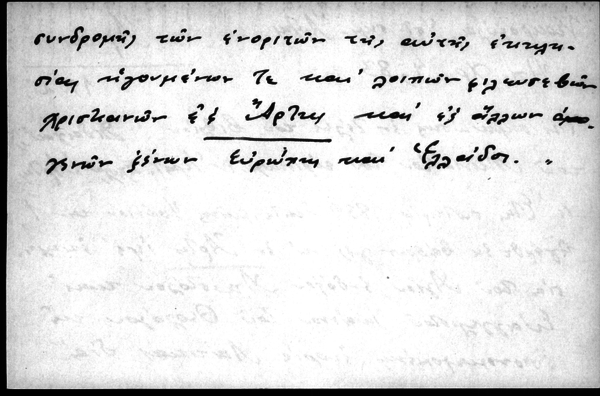 συνδρομῆς τῶν ἐνοριτῶν τῆς αὐτῆς ἐκκλη-
σίας ἡγουμένων τε καὶ λοιπῶν φιλευσεβῶν
χριστιανῶν ἐξ Ἄρτης καὶ ἐξ ἄλλων ὁμο-
γενῶν ξένων Εὐρώπης καὶ Ἑλλάδος. "